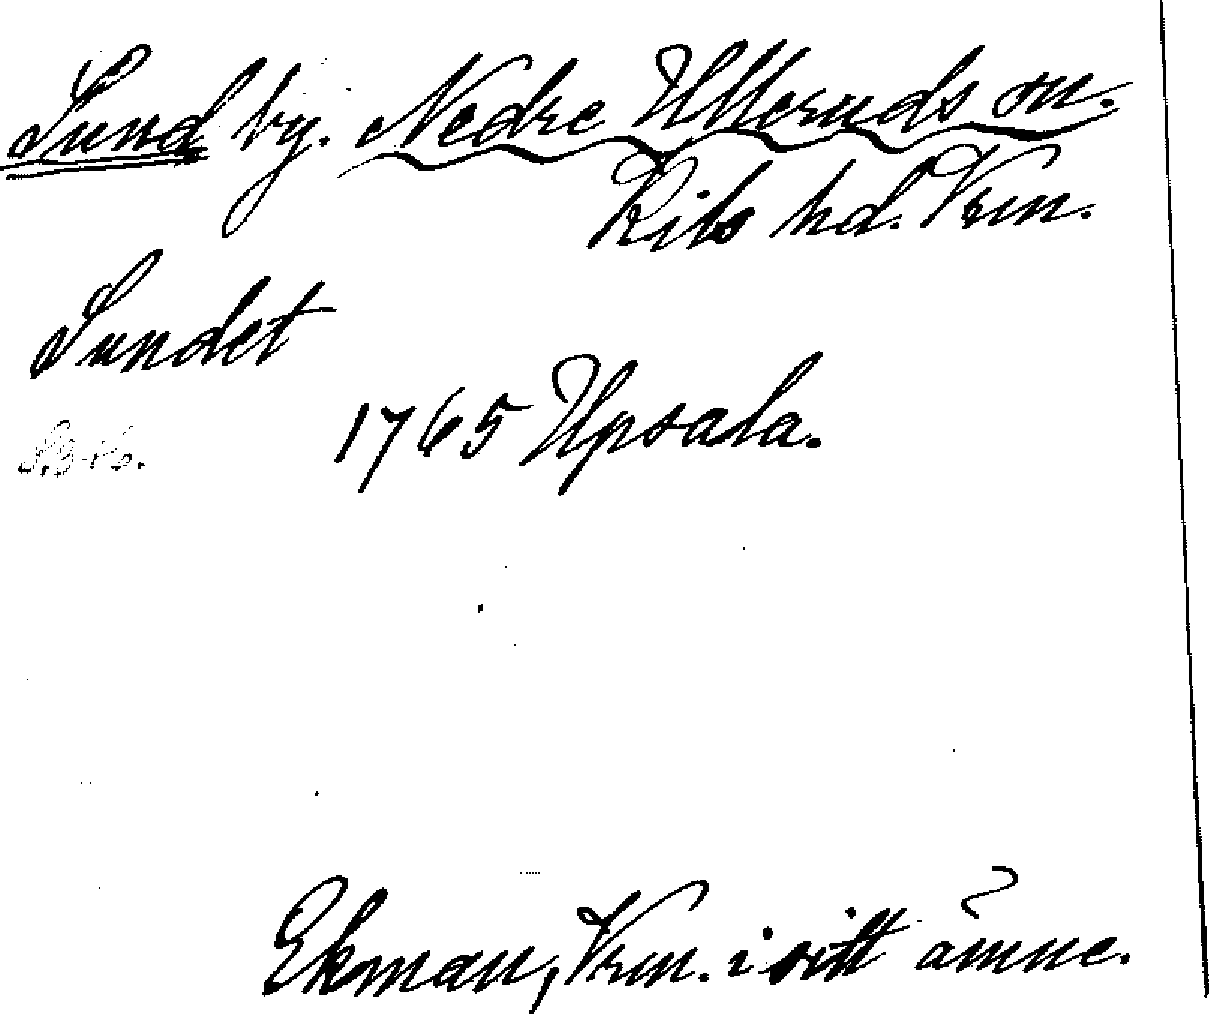 Sund by. Nedre Ulleruds sn.
Kils hd. Vrm.
Sundet
1765 Upsala.
Ekman, Vrm. i sitt ämne.